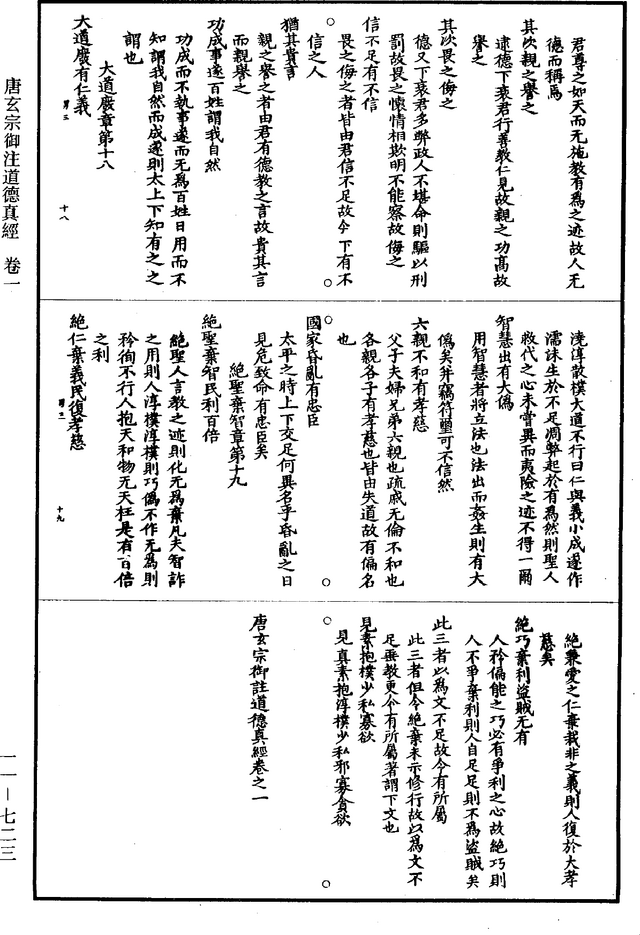 君尊之如天而无施教有為之迹故人无
德而稱焉
其次親之譽之
逮德下衰君行善教仁見故親之功髙故
譽之
其次畏之侮之
德又下衰君多弊政人不堪命則驅以刑
罰故畏之懷情相欺明不能察故侮之
信不足有不信
畏之侮之者皆由君信不足故令下有不
信之人
猶其貴言
親之譽之者由君有德教之言故貴其言
而親譽之
功成事遂百姓謂我自然
功成而不執事遂而无為百姓日用而不
知謂我自然而成遂則太上下知有之之
謂也
大道廢章第十八
大道廢有仁義
男三
十八
澆淳散樸大道不行曰仁與義小成遂作
濡沫生於不足凋弊起於有為然則聖人
救代之心未嘗異而夷險之迹不得一爾
智慧出有大偽
用智慧者將立法也法出而姦生則有大
偽矣并竊符璽可不信然
六親不和有孝慈
父子夫婦兄弟六親也疏戚无倫不和也
各親各子有孝慈也皆由失道故有偏名
也
國家昏亂有忠臣
太平之時上下交足何異名乎昏亂之日
見危致命有忠臣矣
絕聖棄智章第十九
絕聖棄智民利百倍
絕聖人言教之迹則化无為棄凡夫智詐
之用則人淳樸淳樸則巧偽不作无為則
矜徇不行人抱天和物无夭枉是有百倍
之利
絕仁棄義民復孝慈
男三
十九
絕兼愛之仁棄裁非之義則人復於大孝
慈矣
絕巧棄利盜賊无有
人矜偏能之巧必有爭利之心故絕巧則
人不爭棄利則人自足足則不為盜賊矣
此三者以為文不足故令有所屬
此三者但令絕棄未示修行故以為文不
足垂教更令有所屬著謂下文也
見素抱樸少私寡欲
見真素抱淳樸少私邪寡貪欲
唐玄宗御註道德真經卷之一
唐玄宗御注道德真經 卷一
一一－七二三